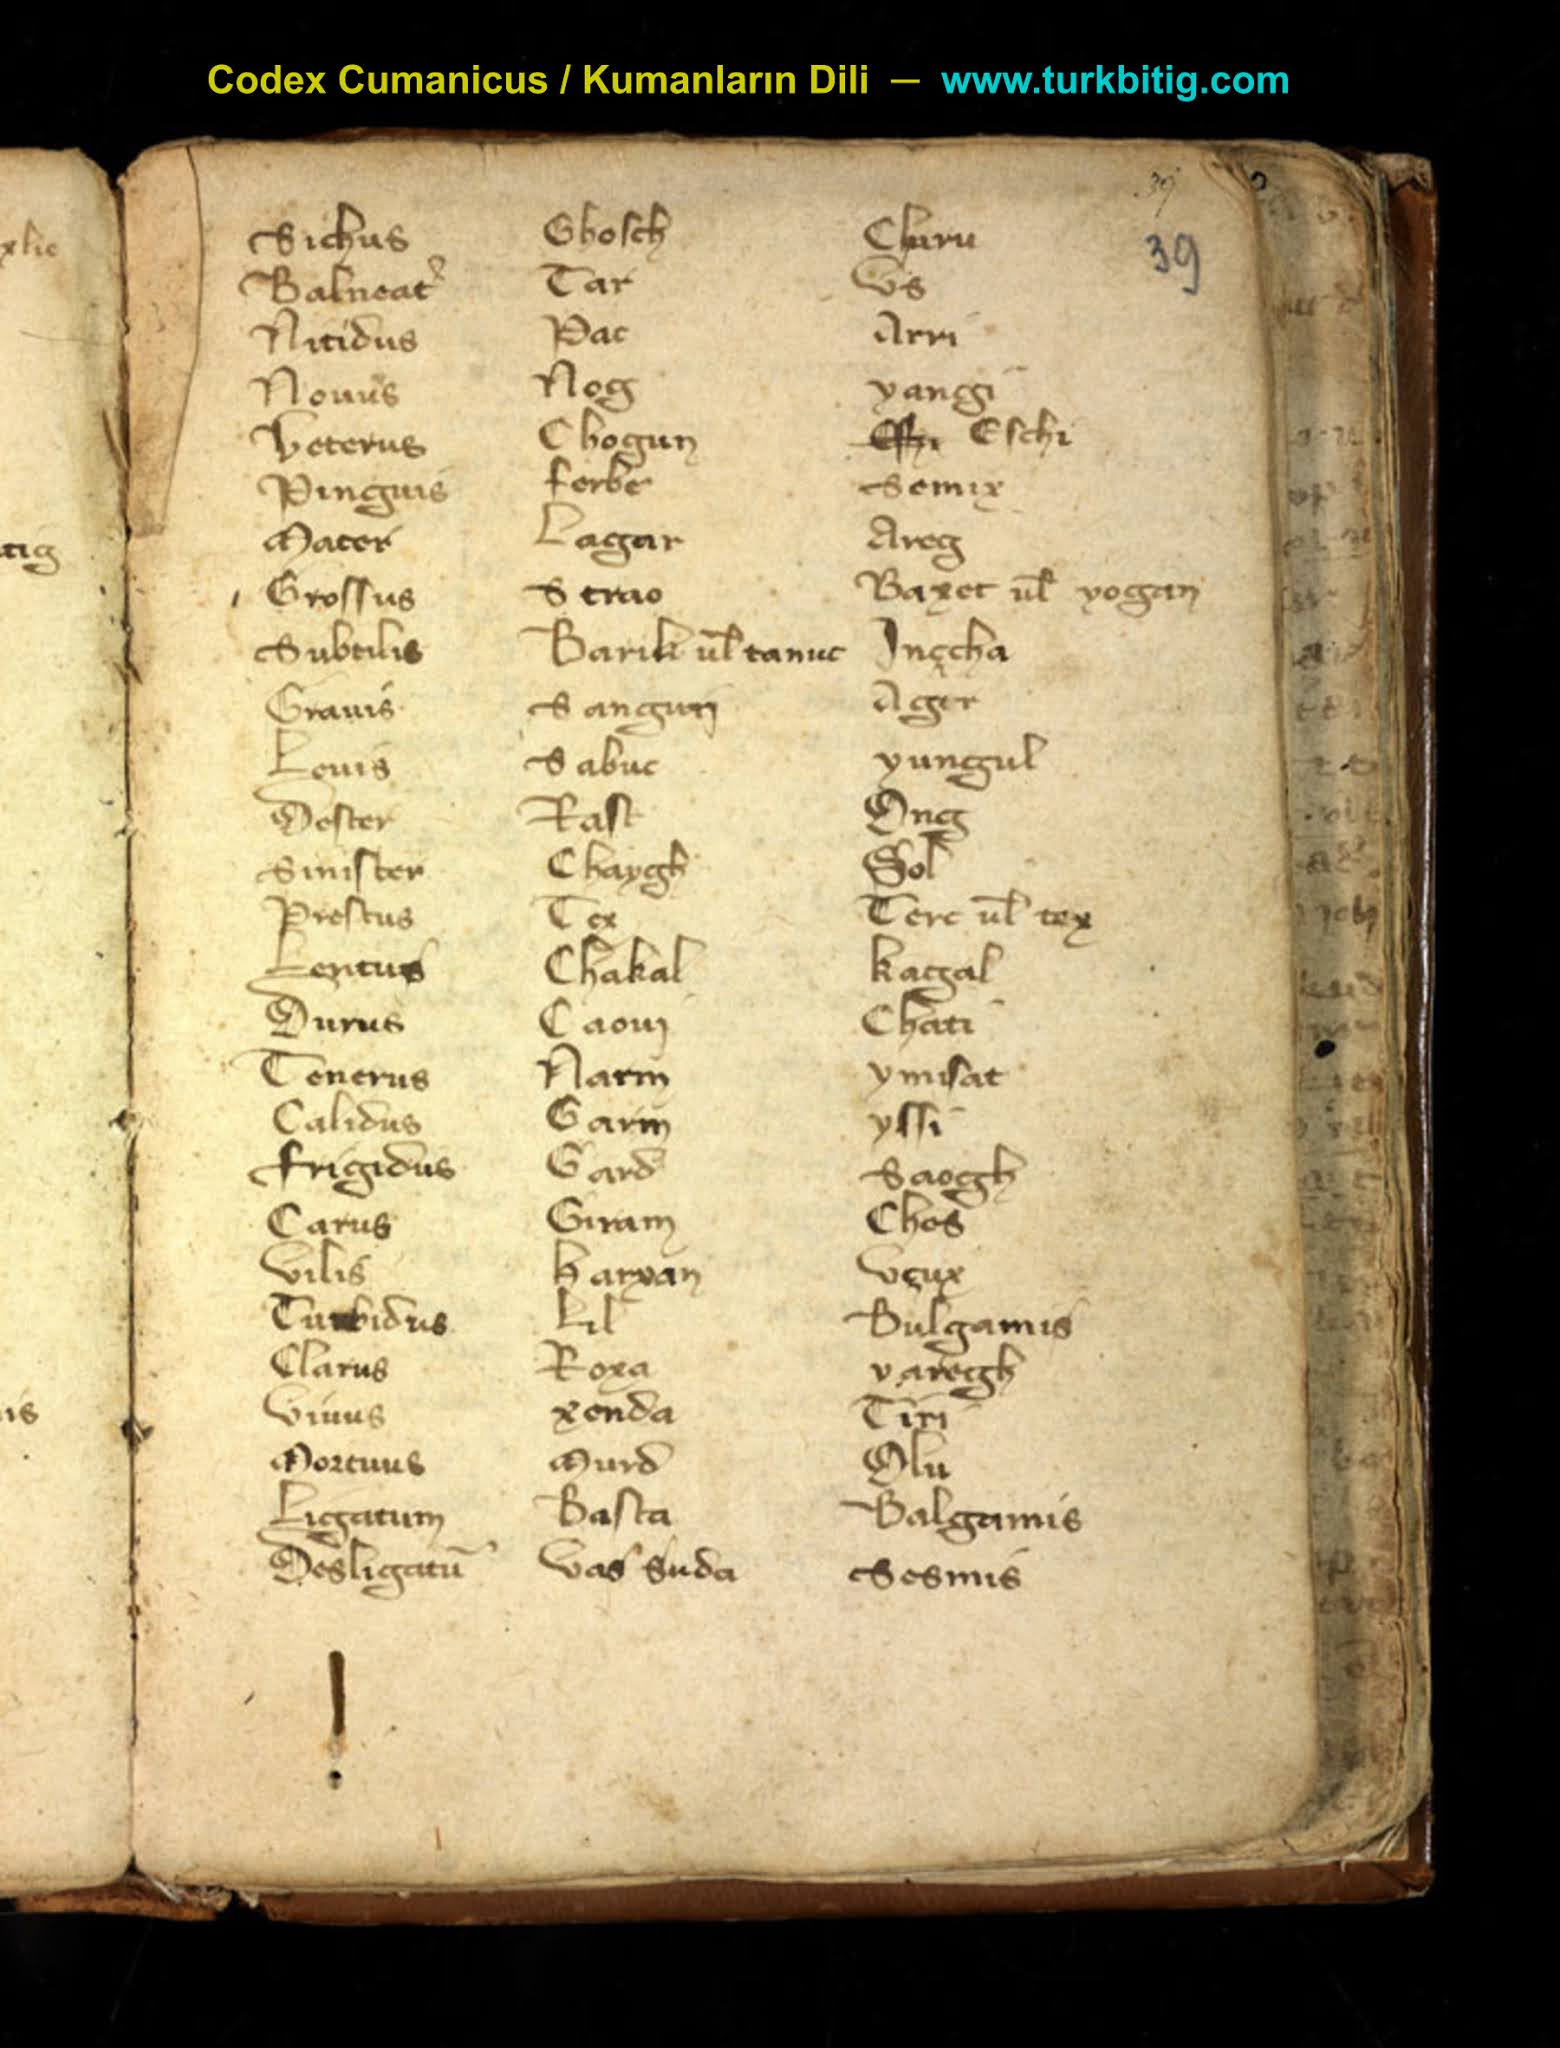 Codex Cumanicus / Kumanların Dili — www.turkbitig.com
39
39
Sichus Ghosch Churu
Balneat Tar Us
Nitidus Pac Arri
Nouus Nog yangi
Veterus Chogun Eschi
Pinguis ferbe Semix
Macer Lagar Areg
Grossus Strao Baxet ul yogan
Subtilis Barik ul tanuc Ingcha
Grauis Sanguin Ager
Leuis Sabuc yungul
Dester Rast Ong
Sinister Chaygh Sol
Prestus Tex Terc ul tex
Lentus Chakal kagal
Durus Caoui Chati
Tenerus Narm ymisat
Calidus Garm yssi
frigidus Gard Saogh
Carus Giram Chos
Vilis Karxan Vcux
Turbidus Lil Bulgamis
Clarus Roxa yaregh
Viuus xenda Tiri
Mortuus Murd Olu
Ligatum Basta Balgamis
Desligatū Vas suda Sesmis